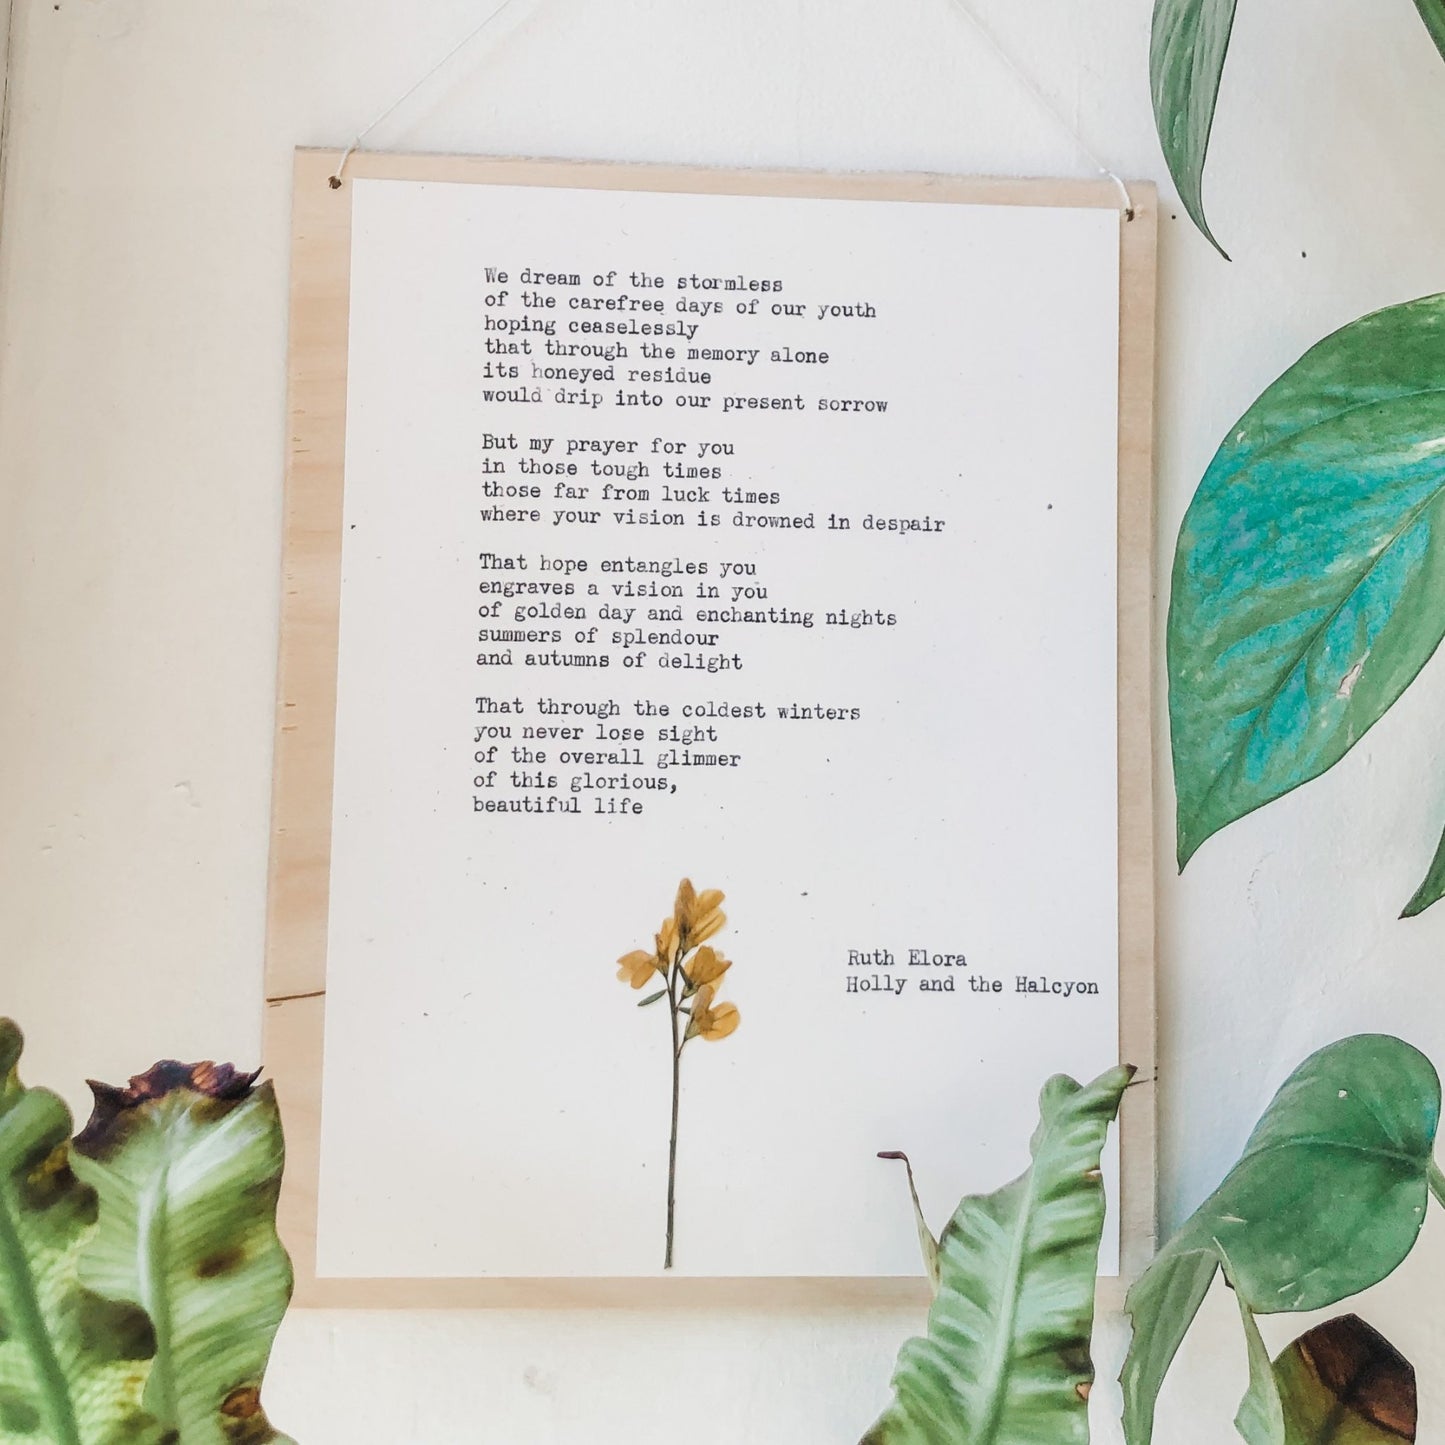 We dream of the stormless
of the carefree days of our youth
hoping ceaselessly
that through the memory alone
its honeyed residue
would drip into our present sorrow
But my prayer for you
in those tough times
those far from luck times
where your vision is drowned in despair
That hope entangles you
engraves a vision in you
of golden day and enchanting nights
summers of splendour
and autumns of delight
That through the coldest winters
you never lose sight
of the overall glimmer
of this glorious,
beautiful life
Ruth Elora
Holly and the Halcyon